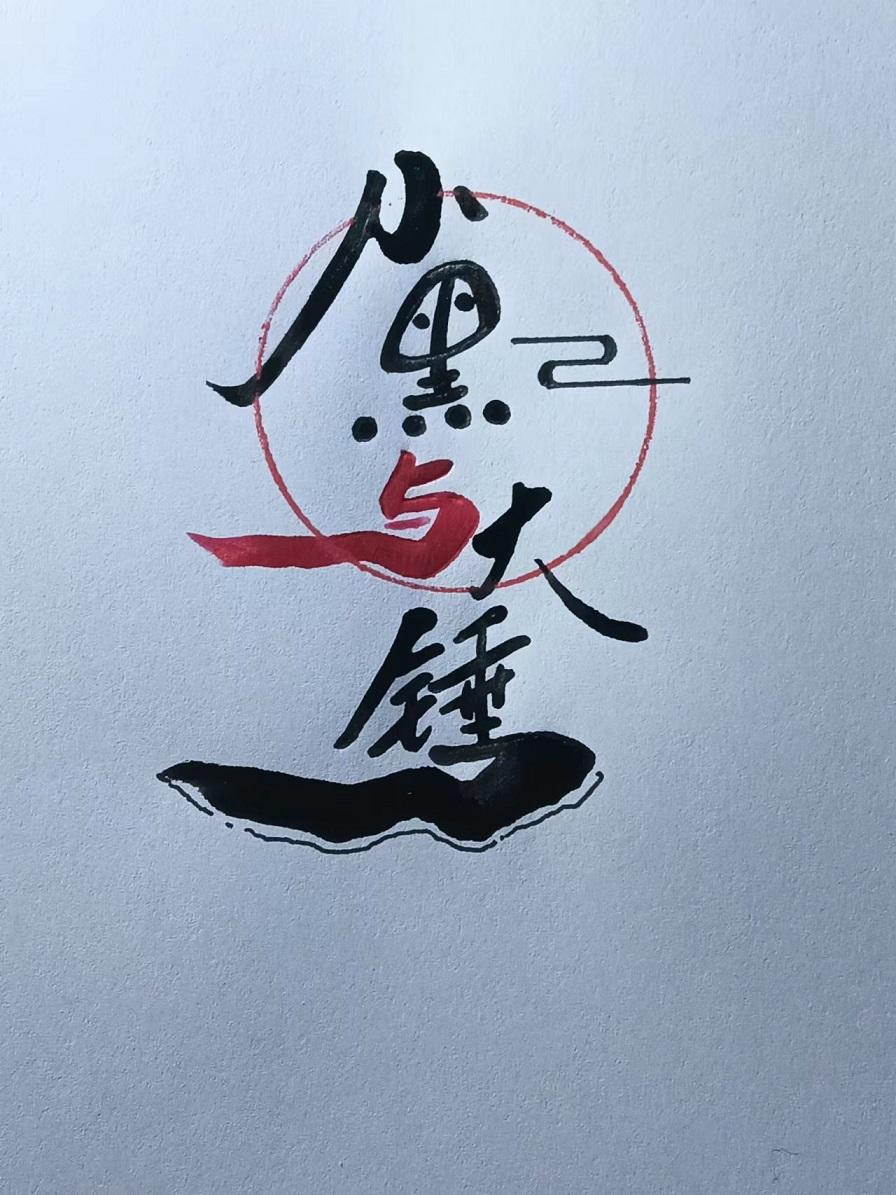 小黑
与大
锤